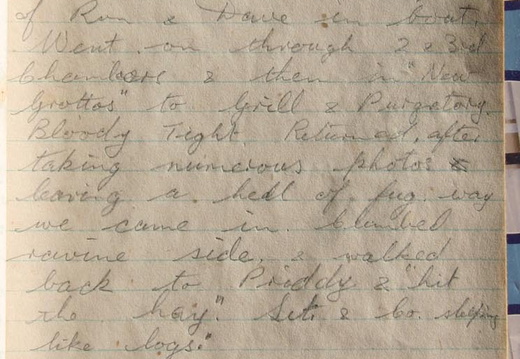 of Ron & Dave in boat.
Went on through 2 & 3rd
Chambers & then in "New
Grottos" to Grill & Purgatory.
Bloody Tight. Returned, after
taking numerous photos &
leaving a hell of fug. way
we came in. Climbed
ravine side, & walked
back to Priddy & "hit
the hay". Set. & Co. sleeping
like logs.